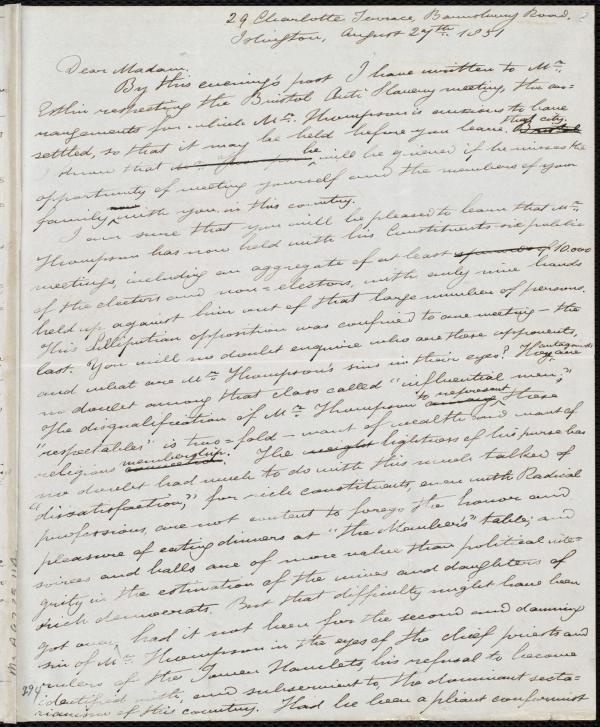 29 Charlotte Terrace, Barnsbury Road.
Islington, August 27th. 1851
Dear Madam.
By this evening's post I have written to Mr.
Estlin respecting the Bristol Anti Slavery meeting, the ar=
rangements for which Mr. Thompson is anxious to have
settled, so that it may be held before you leave that city. Bristol
I know that he will be grieved if he misses the
opportunity of meeting yourself and the members of your
family now with you in this country.
I am sure that you will be pleased to learn that Mr.
Thompson has now held with his Constituents six public
meetings, including an aggregate of at least 10.000
of the electors and non=electors, with only nine hands
held up against him out of that large number of persons.
This Lilliputian opposition was confined to one meeting - the
last. You will no doubt enquire who are these opponents,
and what are Mr. Thompson's sins in their eyes? They are
no doubt among that class called "influential men,"
The disqualification of Mr. Thompson to represent among these
"respectables" is two=fold - want of wealth and want of
religious membership. The weight lightness of his purse has
no doubt had much to do with this much talked of
"dissatisfaction," for rich constituents, even with Radical
professions, are not content to forego the honor and
pleasure of eating dinners at "the Member's" table; and
soirees and balls are of more value than political inte=
grity in the estimation of the wives and daughters of
rich democrats. But that difficulty might have been
got over, had it not been for the second and damning
sin of Mr. Thompson in the eyes of the chief priests and
rulers of the Tower Hamlets, his refusal to become
identified with, and subservient to, the dominant secta=
rianism of this country. Had he been a pliant conformist